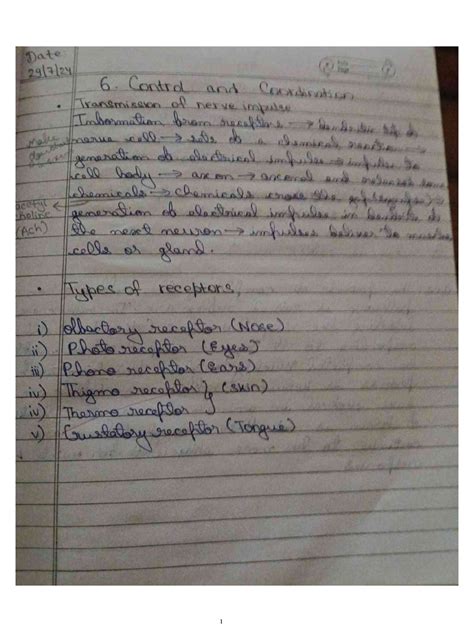 Date:
29/7/24
6. Control and Coordination
• Transmission of nerve impulse
Information from receptors → dendritic tip of
nerve cell → sets of a chemical reaction →
generation of electrical impulse → impulse to
cell body → axon → axonal end releases some
chemicals → chemicals cross the
acetyl
choline
(Ach)
generation of electrical impulse in dendrite of
the next neuron → impulses deliver to muscle
cells or gland.
• Types of receptors,
i) Olfactory receptor (Nose)
ii) Photo receptor (Eyes)
iii) Phono receptor (Ears)
iv) Thigmo receptor } (skin)
iv) Thermo receptor
v) Gustatory receptor (Tongue)
1